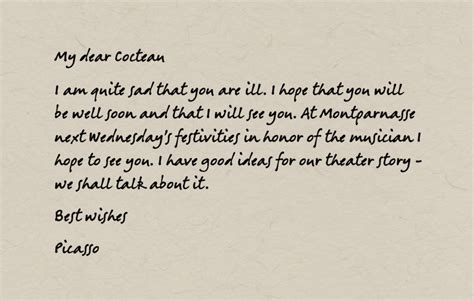 My dear Cocteau
I am quite sad that you are ill. I hope that you will
be well soon and that I will see you. At Montparnasse
next Wednesday's festivities in honor of the musician I
hope to see you. I have good ideas for our theater story -
we shall talk about it.
Best wishes
Picasso